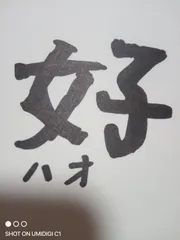 好
ハオ
SHOT ON UMIDIGI C1